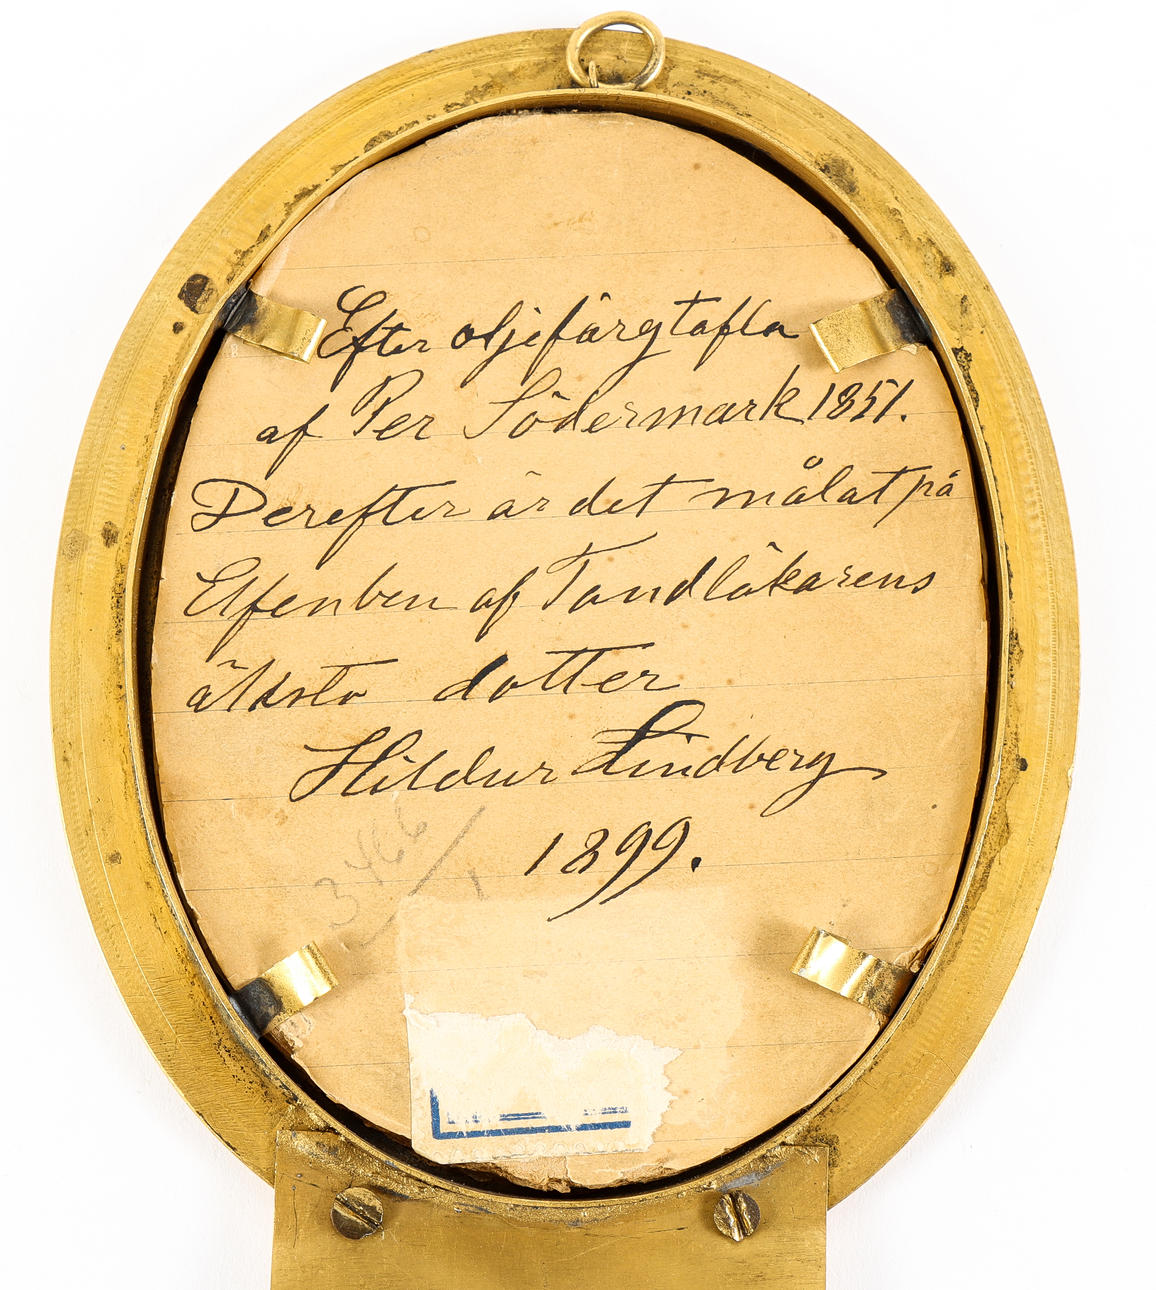 Efter oljefärgtafla
af Per Södermark 1851.
Derefter är det målat på
Elfenben af Tandläkarens
äldsta dotter
Hildur Lindberg
1899.
3466/1